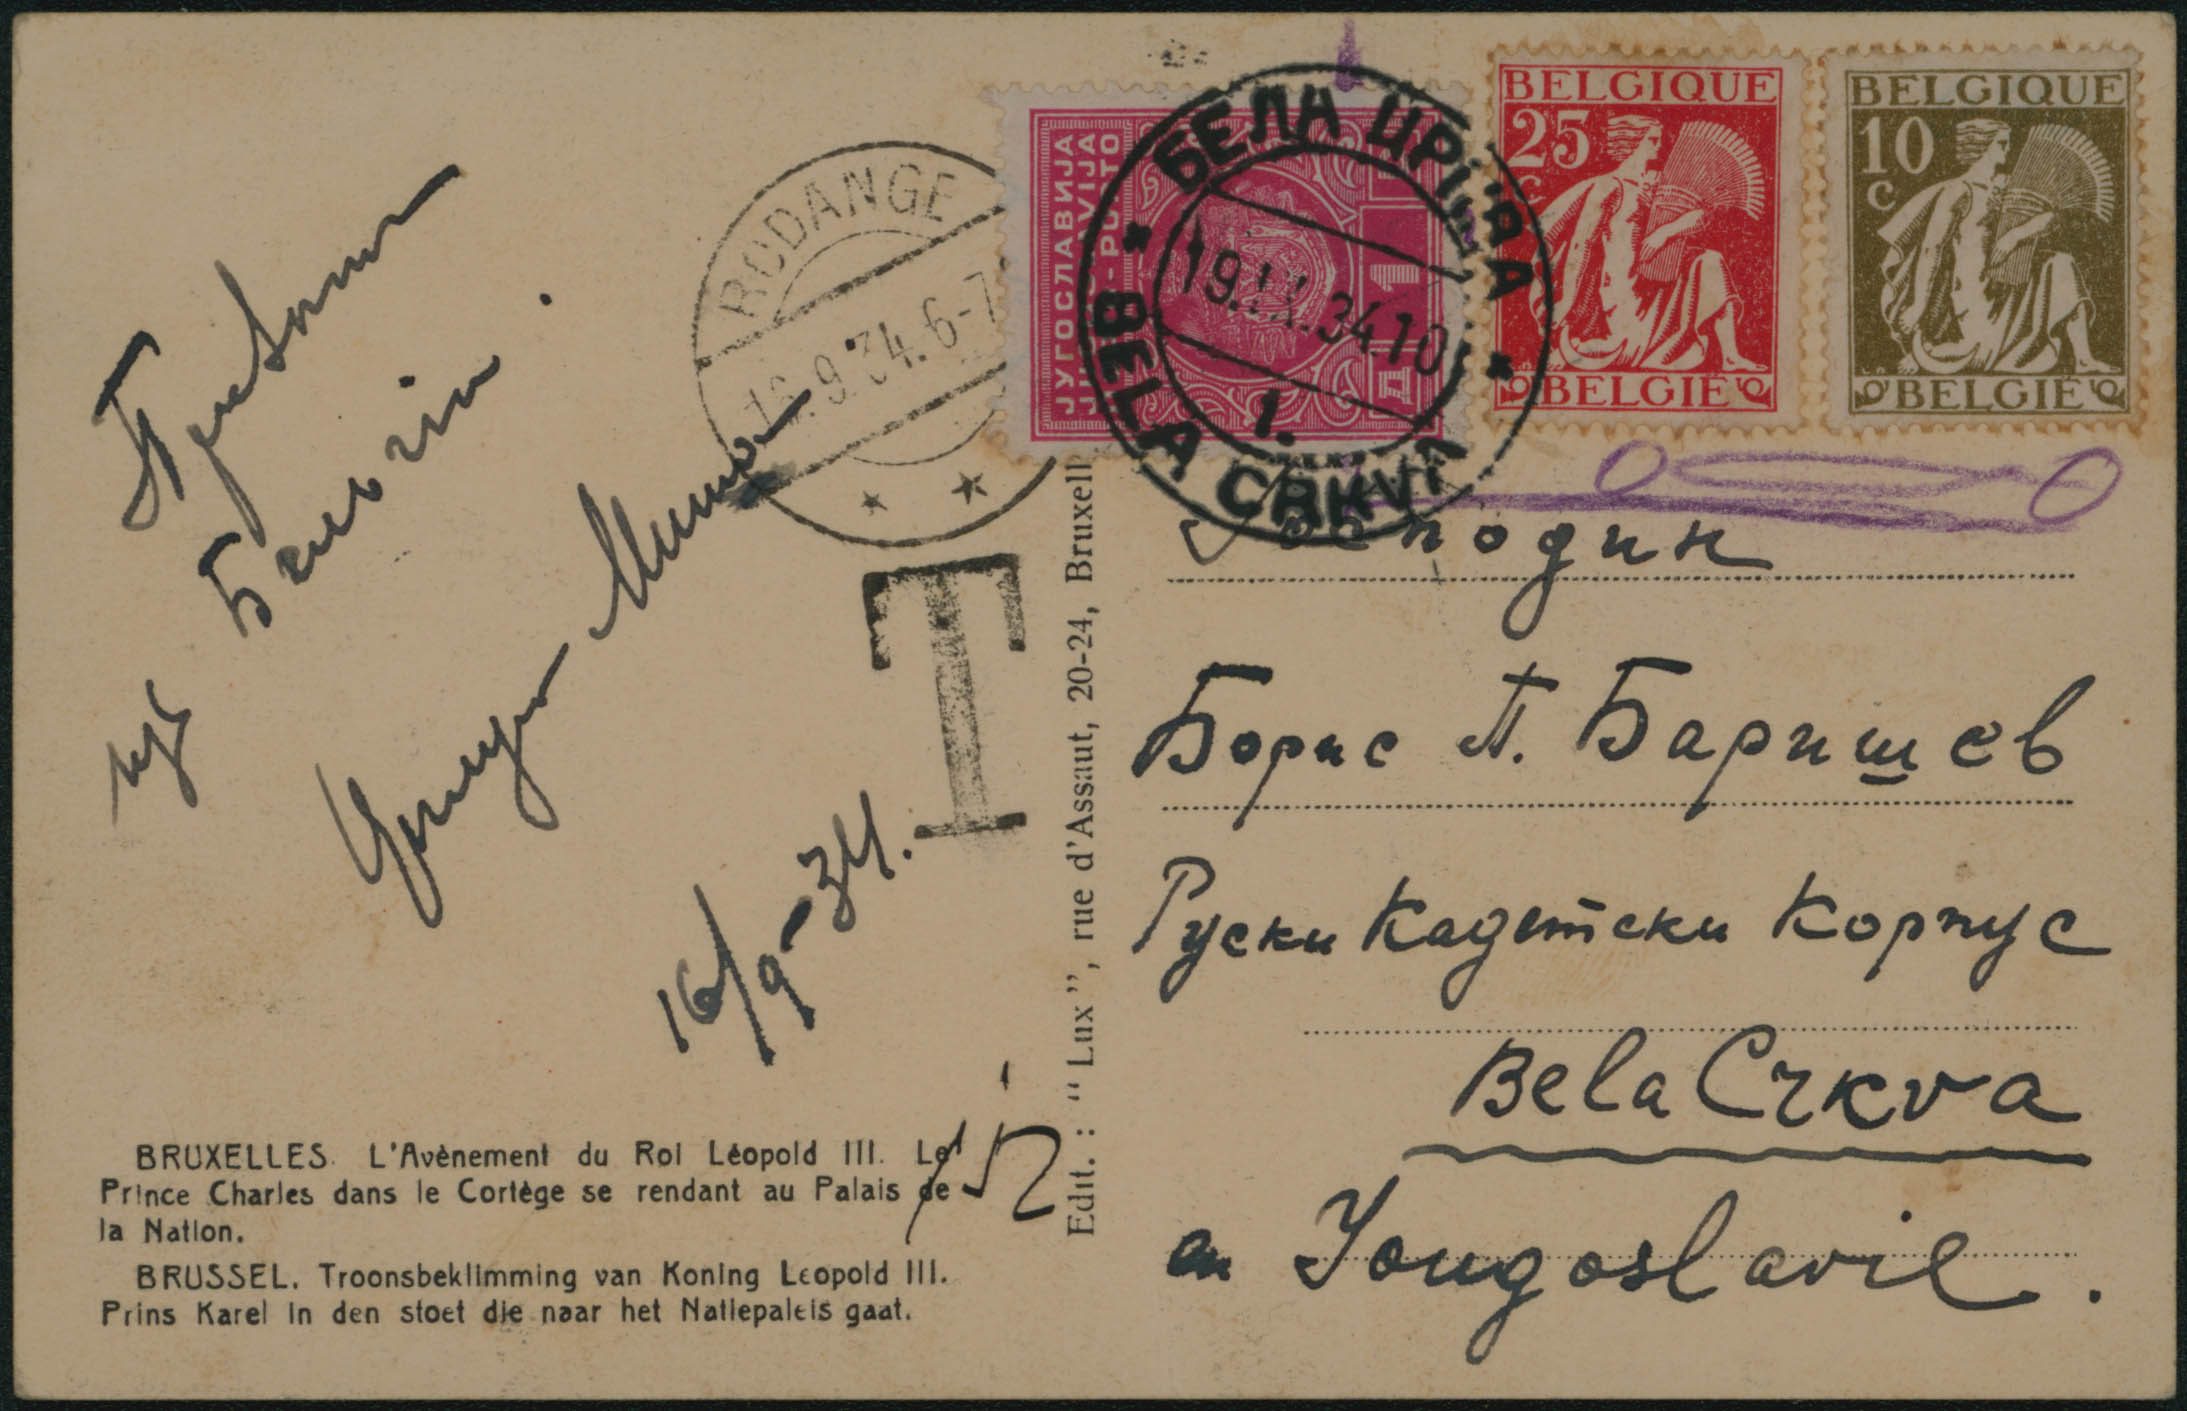 BELGIQUE
25
c
BELGIË
BELGIQUE
10
c
BELGIË
ЈУГОСЛАВИЈА
1
БЕЛА ЦРКВА
19.IX.34.10
1.
BELA CRKVA
RODANGE
9.34.6-7
T
из
16/9-34.
Господин
Борис П. Баришев
Руски Кадетски Корпус
Bela Crkva
en Yougoslavie.
BRUXELLES. L'Avènement du Roi Léopold III. Le
Prince Charles dans le Cortège se rendant au Palais de
la Nation.
BRUSSEL. Troonsbeklimming van Koning Leopold III.
Prins Karel in den stoet die naar het Natiepaleis gaat.
Edit. : “Lux”, rue d'Assaut, 20-24, Bruxell